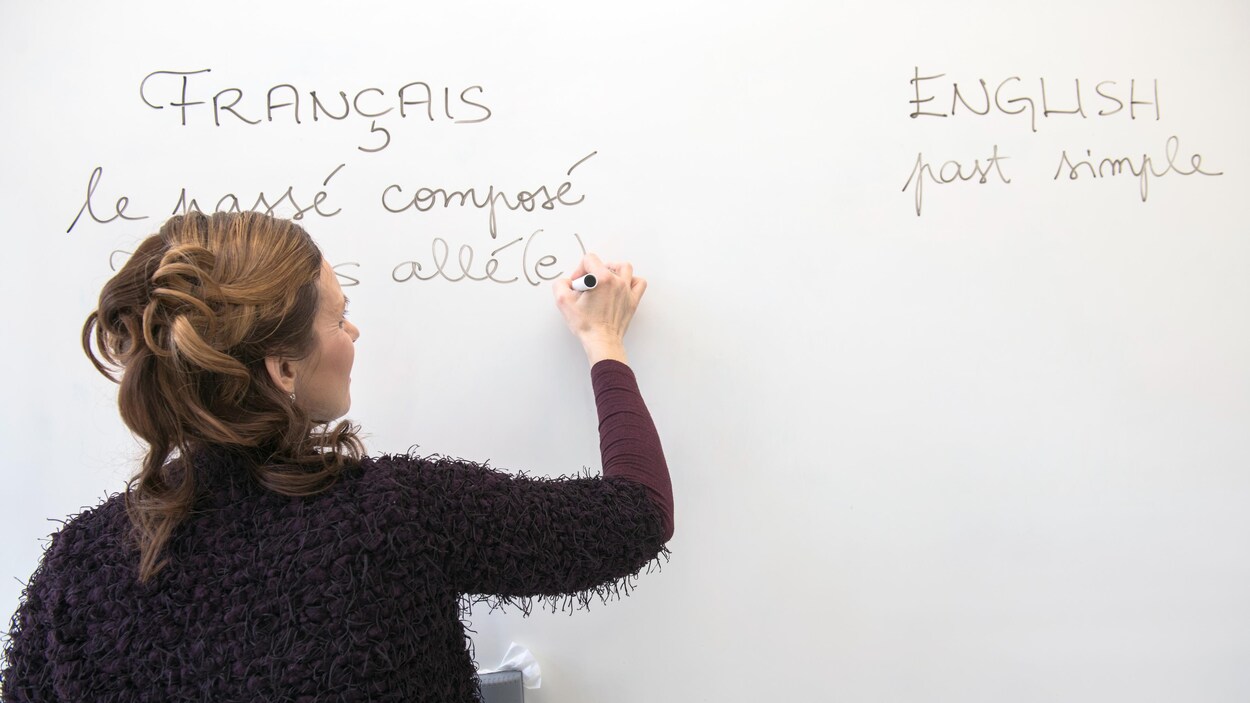 FRANÇAIS
ENGLISH
le passé composé
past simple
allé(e)